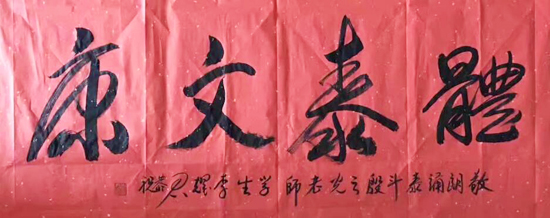 體泰文康
敬朗誦泰斗殷之光老師学生李耀恭祝